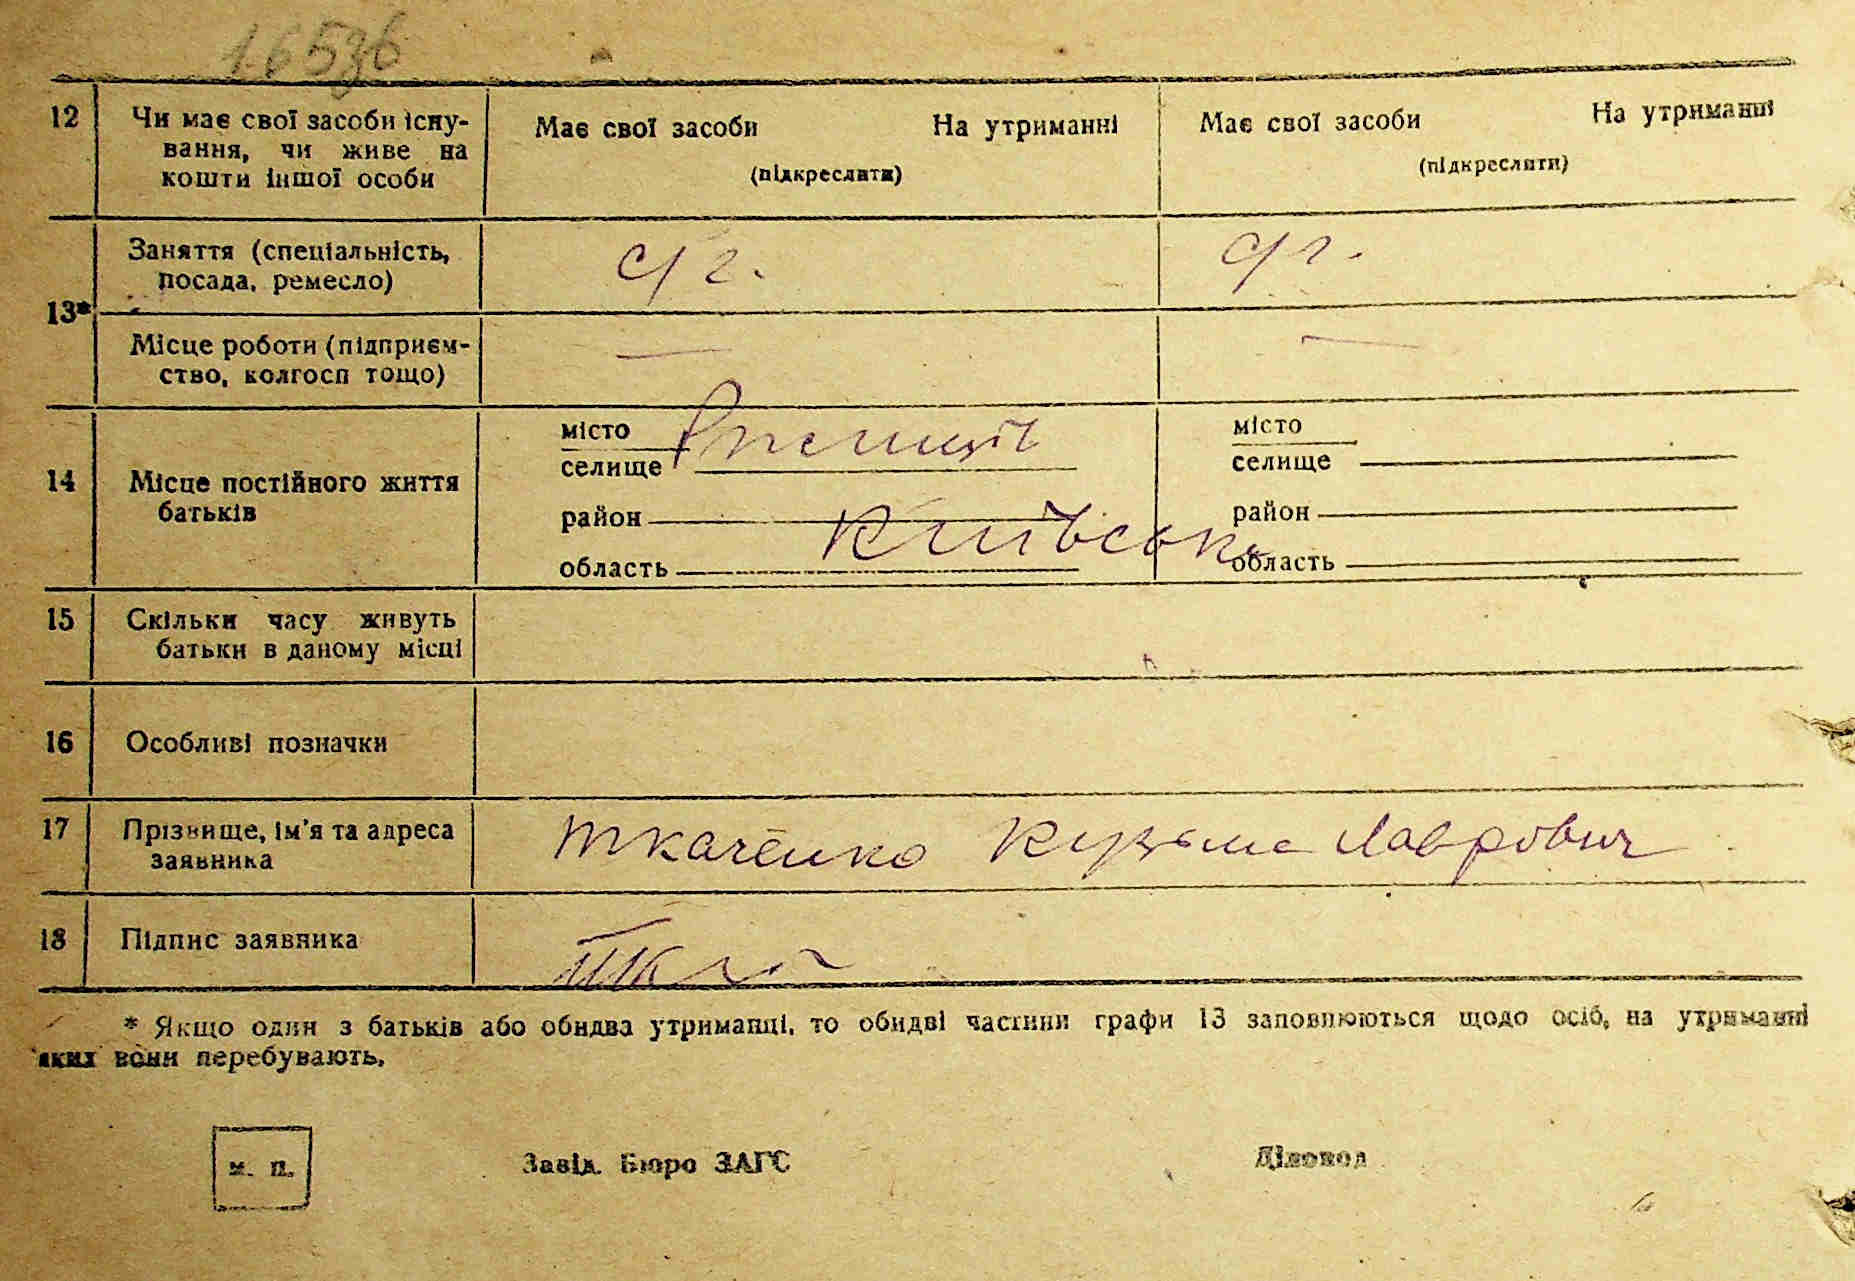 16536
12 Чи має свої засоби існу- Має свої засоби На утриманні Має свої засоби На утриманні
вання, чи живе на (підкреслити) (підкреслити)
кошти іншої особи
13* Заняття (спеціальність, с/г. с/г.
посада, ремесло)
Місце роботи (підприєм- — —
ство, колгосп тощо)
14 Місце постійного життя батьків
місто місто
селище селище
район район
область Київська область
15 Скільки часу живуть
батьки в даному місці
16 Особливі позначки
17 Прізвище, ім'я та адреса Ткаченко Кузьма Лаврович
заявника
18 Підпис заявника
* Якщо один з батьків або обидва утриманці, то обидві частини графи 13 заповнюються щодо осіб, на утриманні
яких вони перебувають.
м. п. Завід. Бюро ЗАГС Діловод